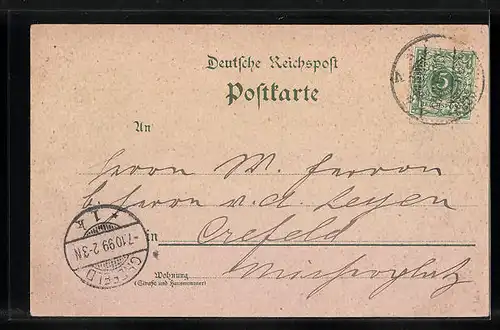 Deutsche Reichspost
Postkarte
5
An
Herrn W. Herron
b. Herrn v. d. Leyen
in Crefeld
Wohnung
(Straße und Hausnummer)
CREFELD
-7.10.99 2-3N
* 1 k